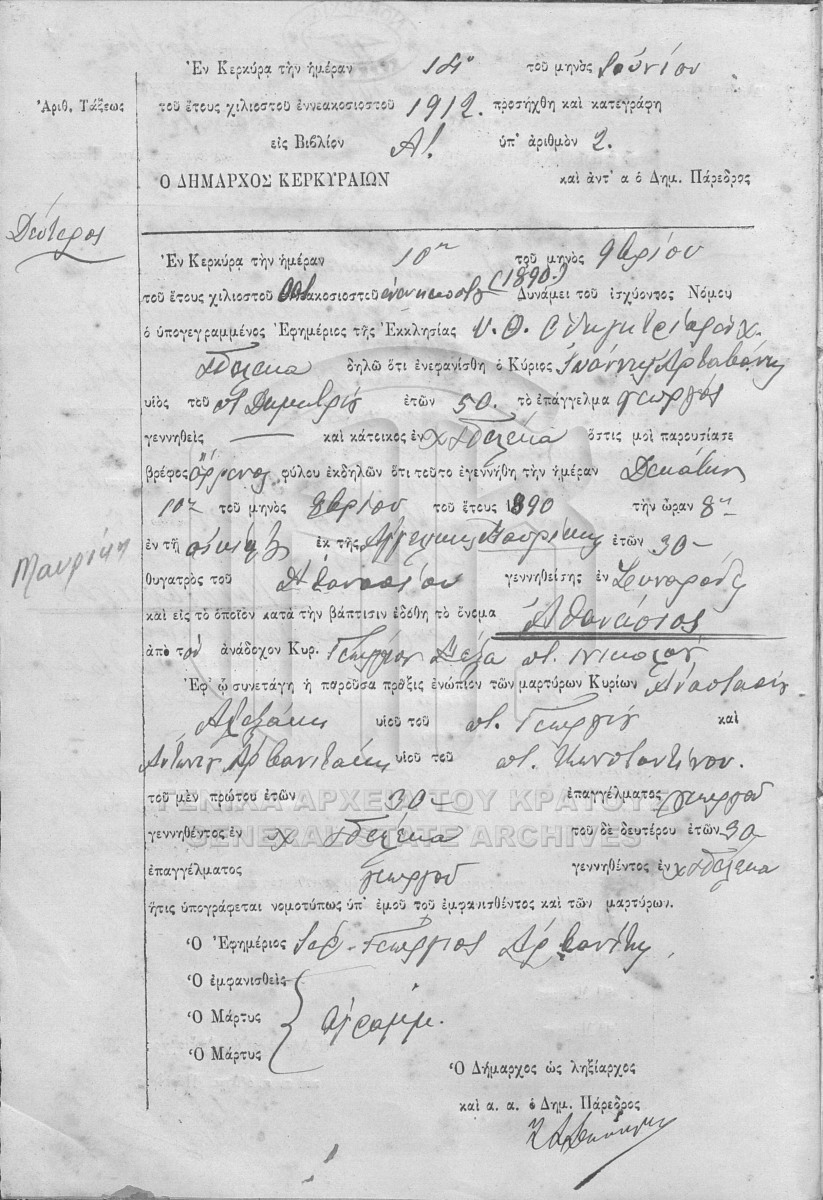 Ἐν Κερκύρᾳ τὴν ἡμέραν 18ην τοῦ μηνὸς Ἰουνίου
Ἀριθ. Τάξεως
τοῦ ἔτους χιλιοστοῦ ἐννεακοσιοστοῦ 1912. προσήχθη καὶ κατεγράφη
εἰς Βιβλίον Α!. ὑπ' ἀριθμὸν 2.
Ὁ ΔΗΜΑΡΧΟΣ ΚΕΡΚΥΡΑΙΩΝ καὶ ἀντ' α ὁ Δημ. Πάρεδρος
Δεύτερος
Ἐν Κερκύρᾳ τὴν ἡμέραν 10ην τοῦ μηνὸς 9βρίου
τοῦ ἔτους χιλιοστοῦ (1890.) Δυνάμει τοῦ ἰσχύοντος Νόμου
ὁ ὑπογεγραμμένος Ἐφημέριος τῆς Ἐκκλησίας Υ. Θ. Ὁδηγητρίας χ.
Πέλεκα δηλῶ ὅτι ἐνεφανίσθη ὁ Κύριος Ἰωάννης
υἱὸς τοῦ ποτ Δημητρίου ἐτῶν 50. τὸ ἐπάγγελμα γεωργός
γεννηθεὶς — καὶ κάτοικος ἐν χ Πέλεκα ὅστις μοὶ παρουσίασε
βρέφος ἄρρενος φύλου ἐκδηλῶν ὅτι τοῦτο ἐγεννήθη τὴν ἡμέραν Δεκάτην
10ην τοῦ μηνὸς 9βρίου τοῦ ἔτους 1890 τὴν ὥραν 8ην
ἐν τῇ οἰκίᾳ ἐκ τῆς Μαυρίκη ἐτῶν 30—
Μαυρίκη
θυγατρὸς τοῦ Ἀθανασίου γεννηθείσης ἐν Συναράδες
καὶ εἰς τὸ ὁποῖον κατὰ τὴν βάπτισιν ἐδόθη τὸ ὄνομα Ἀθανάσιος
ἀπὸ τοῦ ἀνάδοχον Κυρ. Γεώργιον ποτ. Νικολάου
Ἐφ' ᾧ συνετάγη ἡ παροῦσα πρᾶξις ἐνώπιον τῶν μαρτύρων Κυρίων Ἀναστασίου
υἱοῦ τοῦ ποτ. Γεωργίου καὶ
Ἀντωνίου Ἀρβανιτάκη υἱοῦ τοῦ ποτ. Κωνσταντίνου.
τοῦ μὲν πρώτου ἐτῶν 30— ἐπαγγέλματος γεωργοῦ
ΓΕΝΙΚΑ ΑΡΧΕΙΑ ΤΟΥ ΚΡΑΤΟΥΣ
γεννηθέντος ἐν χ Πέλεκα τοῦ δὲ δευτέρου ἐτῶν 30—
GENERAL STATE ARCHIVES
ἐπαγγέλματος γεωργοῦ γεννηθέντος ἐν χ Πέλεκα
ἥτις ὑπογράφεται νομοτύπως ὑπ' ἐμοῦ τοῦ ἐμφανισθέντος καὶ τῶν μαρτύρων.
Ὁ Ἐφημέριος Ἱερ. Γεώργιος Ἀρβανίτης
Ὁ ἐμφανισθεὶς
Ὁ Μάρτυς ἀγράμμ.
Ὁ Μάρτυς
Ὁ Δήμαρχος ὡς ληξίαρχος
καὶ α. α. ὁ Δημ. Πάρεδρος